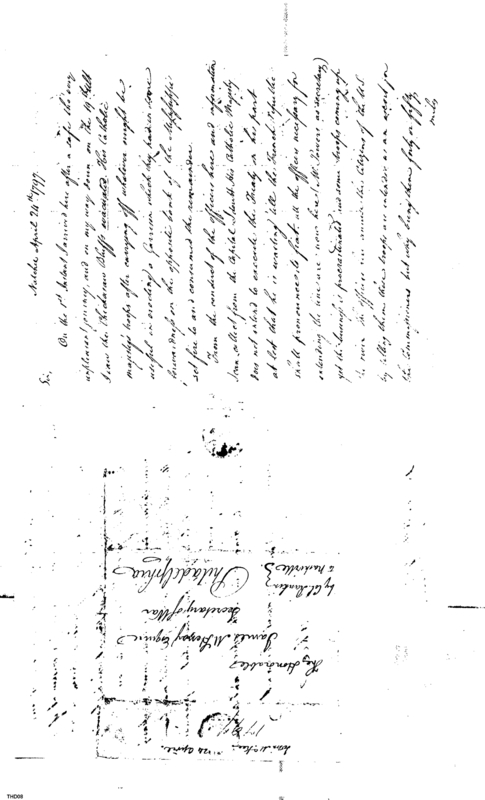 Natchez April 24th 1797.
Sir,
On the 1st Instant I arrived here after a very
unpleasant journey, and on my way down on the 19th Ult
I saw the Chickasaw Bluffs evacuated. His Catholic
majesty's troops after carrying off whatever might be
useful in erecting a Garrison which they had in
lower down on the opposite bank of the Mississippi
set fire to and consumed the remainder.
From the conduct of the officers here and information
I can collect from the Capital, I doubt his Catholic Majesty
does not intend to execute the Treaty on his part
at lest that he is waiting till the French Republic
shall pronounce its fiat. all the officers necessary for
extending the line are now here (Mr. Powers as secretary)
yet the business is procrastinated and some troops coming up
the river the officers in amuse the Citizens of the U.S.
by telling them those troops are intended as an escort for
the Commissioners but why bring them forty or fifty
miles
The Honorable
James McHenry Esquire
Secretary of War
Philadelphia
by
& Nashville
24 April
1797
THD08